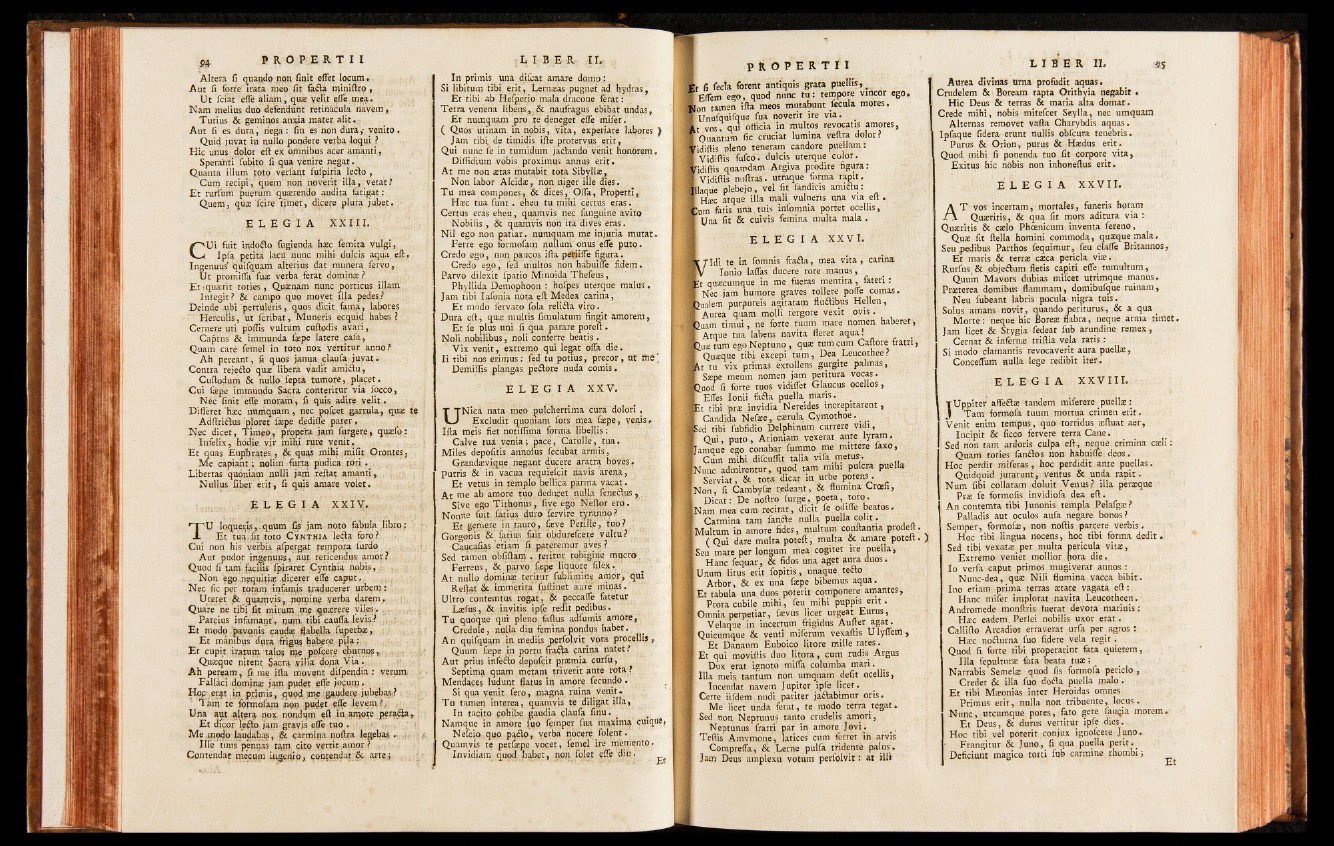 94 PROPERTII
Altera si quando non sinit esset locum.
Aut si forte irata meo sit facta ministro,
Ut sciat esse aliam, quæ velit esse mea.
Nam melius duo defendunt retinacula navem,
Turius & geminos anxia mater alit.
Aut si es dura, nega: sin es non dura, venito.
Quid juvat in nullo pondere verba loqui?
Hic unus dolor est ex omnibus acer amanti,
Speranti subito si qua venire negat.
Quanta illum toto versant suspiria lecto,
Cum recipi, quem non noverit illa, vetat?
Et rursum puerum quærendo audita fatigat:
Quem, quæ scire timet, dicere plura jubet.
ELEGIA XXIII.
CUi fuit indocto fugienda hæc semita vulgi,
Ipsa petita lacu nunc mihi dulcis aqua est,
Ingenuus quisquam alterius dat munera servo,
Ut promissa suæ verba ferat dominæ?
Et quærit toties, Quænam nunc porticus illam
Integit? & campo quo movet illa pedes?
Deinde ubi pertuleris, quos dicit fama, labores
Herculis, ut scribat, Muneris ecquid habes?
Cernere uti possis vultum custodis avari,
Captus & immunda sæpe latere casa,
Quam care semel in toto nox vertitur anno?
Ah pereant, si quos janua clausa juvat.
Contra rejecto quæ libera vadit amictu,
Custodum & nullo septa tumore, placet.
Cui sæpe immundo Sacra conteritur via socco,
Nec sinit esse moram, si quis adire velit.
Differet hæc numquam, nec poscet garrula, quæ te
Adstrictus ploret sæpe dedisse pater.
Nec dicet, Timeo, propera jam surgere, quæso:
Infelix, hodie vir mihi rure venit.
Et quas Euphrates, & quas mihi misit Orontes,
Me capiant: nolim furta pudica tori.
Libertas quoniam nulli jam restat amanti,
Nullus liber erit, si quis amare volet.
ELEGIA XXIV.
TU loqueris, quum sis jam noto fabula libro:
Et tua sit toto CYNTHIA lecta foro?
Cui non his verbis aspergat tempora surdo
Aut pudor ingenuus, aut reticendus amor?
Quod si tam facilis spiraret Cynthia nobis,
Non ego nequitiæ dicerer esse caput,
Nec sic per totam infamis traducerer urbem:
Ureret & quamvis, nomine verba darem.
Quare ne tibi sit mirum me quærere viles.
Parcius infamant, num tibi caussa levis?
Et modo pavonis caudæ flabella superbæ,
Et manibus dura frigus habere pila:
Et cupit iratum talos me poscere eburnos,
Quæque nitent Sacra vilia dona Via.
Ah peream, si me ista movent dispendia: verum
Fallaci dominæ jam pudet esse jocum.
Hoc erat in primis, quod me gaudere jubebas?
Tam te formosam non pudet esse levem?
Una aut altera nox nondum est in amore peracta,
Et dicor lecto jam gravis esse tuo.
Me modo laudabas, & carmina nostra legebas.
Ille tuus pennas tam cito vertit amor?
Contendat mecum ingenio, contendat & arte;
LIBER II.
In primis una discat amare domo:
Si libitum tibi erit, Lernæas pugnet ad hydras,
Et tibi ab Hesperio mala dracone ferat:
Tetra venena libens, & naufragus ebibat undas,
Et numquam pro te deneget esse miser.
( Quos utinam in nobis, vita, experiare labores )
Jam tibi de timidis iste protervus erit,
Qui nunc se in tumidum jactando venit honorem.
Dissidium vobis proximus annus erit.
At me non ætas mutabit tota Sibyllæ,
Non labor Alcidæ, non niger ille dies.
Tu mea compones, & dices, Ossa, Properti,
Hæc tua sunt. eheu tu mihi certus eras.
Certus eras eheu, quamvis nec sanguine avito
Nobilis, & quamvis non ita dives eras.
Nil ego non patiar. numquam me injuria mutat.
Ferre ego formosam nullum onus esse puto.
Credo ego, non paucos ista periisse figura.
Credo ego, sed multos non habuisse fidem.
Parvo dilexit spatio Minoida Theseus,
Phyllida Demophoon: hospes uterque malus.
Jam tibi Iasonia nota est Medea carina,
Et modo servato sola relicta viro.
Dura est, quæ multis simulatum fingit amorem,
Et se plus uni si qua parare potest.
Noli nobilibus, noli conferre beatis.
Vix venit, extremo qui legat ossa die.
Ii tibi nos erimus: sed tu potius, precor, ut me
Demissis plangas pectore nuda comis.
ELEGIA XXV.
UNica nata meo pulcherrima cura dolori,
Excludit quoniam sors mea sæpe, venis.
Ista meis fiet notissima forma libellis:
Calve tua venia; pace, Catulle, tua.
Miles depositis annosus secubat armis,
Grandævique negant ducere aratra boves.
Putris & in vacua requiescit navis arena,
Et vetus in templo bellica parma vacat.
At me ab amore tuo deducet nulla senectus,
Sive ego Tithonus, sive ego Nestor ero.
Nonne fuit satius duro servire tyranno?
Et gemere in tauro, sæve Perille, tuo?
Gorgonis & satius fuit obdurescere vultu?
Caucasias etiam si pateremur aves?
Sed tamen obsistam. teritur robigine mucro
Ferreus, & parvo sæpe liquore silex.
At nullo dominæ teritur sublimine amor, qui
Restat & immerita sustinet aure minas.
Ultro contemtus rogat, & peccasse fatetur
Læsus, & invitis ipse redit pedibus.
Tu quoque qui pleno fastus adsumis amore,
Credule, nulla diu femina pondus habet.
An quisquam in mediis persolvit vota procellis,
Quum sæpe in portu fracta carina natet?
Aut prius infecto deposcit præmia cursu,
Septima quam metam triverit ante rota?
Mendaces ludunt flatus in amore secundo.
Si qua venit sero, magna ruina venit.
Tu tamen interea, quamvis te diligat illa,
In tacito cohibe gaudia clausa sinu.
Namque in amore suo semper sua maxima cuique,
Nescio quo pacto, verba nocere solent.
Quamvis te persæpe vocet, semel ire memento.
Invidiam quod habet, non solet esse diu.
Et
PROPERTII
Et si secla forent antiquis grata puellis,
Essem ego, quod nunc tu: tempore vincor ego.
Non tamen ista meos mutabunt secula mores.
Unusquisque sua noverit ire via.
At vos, qui officia in multos revocatis amores,
Quantum sic cruciat lumina vestra dolor?
Vidistis pleno teneram candore puellam:
Vidistis fusco. dulcis uterque color.
Vidistis quamdam Argiva prodire figura:
Vidistis nostras. utraque forma rapit.
Illaque plebejo, vel sit sandicis amictu:
Hæc atque illa mali vulneris una via est.
Cum satis una tuis insomnia portet ocellis,
Una sit & cuivis femina multa mala.
ELEGIA XXVI.
VIdi te in somnis fracta, mea vita, carina
Ionio lassas ducere rore manus,
Et quæcumque in me fueras mentita, fateri:
Nec jam humore graves tollere posse comas.
Qualem purpureis agitatam fluctibus Hellen,
Aurea quam molli tergore vexit ovis.
Quam timui, ne forte tuum mare nomen haberet,
Atque tua labens navita fleret aqua!
Quæ tum ego Neptuno, quæ tum cum Castore fratri,
Quæque tibi excepi tum, Dea Leucothee?
At tu vix primas extollens gurgite palmas,
Sæpe meum nomen jam peritura vocas.
Quod si forte tuos vidisset Glaucus ocellos,
Esses Ionii facta puella maris.
Et tibi præ invidia Nereides increpitarent,
Candida Nesæe, cærula Cymothoe.
Sed tibi subsidio Delphinum currere vidi,
Qui, puto, Arioniam vexerat ante lyram.
Jamque ego conabar summo me mittere saxo,
Cum mihi discussit talia visa metus.
Nunc admirentur, quod tam mihi pulcra puella
Serviat, & tota dicar in urbe potens.
Non, si Cambysæ redeant, & flumina Crœsi,
Dicat: De nostro surge, poeta, toro.
Nam mea cum recitat, dicit se odisse beatos.
Carmina tam sancte nulla puella colit.
Multum in amore fides, multum constantia prodest.
( Qui dare multa potest, multa & amare potest. )
Seu mare per longum mea cogitet ire puella,
Hanc sequar, & fidos una aget aura duos.
Unum litus erit sopitis, unaque tecto
Arbor, & ex una sæpe bibemus aqua.
Et tabula una duos poterit componere amantes,
Prora cubile mihi, seu mihi puppis erit.
Omnia perpetiar, sævus licet urgeat Eurus,
Velaque in incertum frigidus Auster agat.
Quicumque & venti miserum vexastis Ulyssem,
Et Danaum Euboico litore mille rates.
Et qui movistis duo litora, cum rudis Argus
Dux erat ignoto missa columba mari.
Illa meis tantum non umquam desit ocellis,
Incendat navem Jupiter ipse licet.
Certe iisdem nudi pariter jactabimur oris.
Me licet unda ferat, te modo terra tegat.
Sed non Neptunus tanto crudelis amori,
Neptunus fratri par in amore Jovi.
Testis Amymone, latices cum ferret in arvis
Compressa, & Lerne pulsa tridente palus.
Jam Deus amplexu votum persolvit: at illi
LIBER II. 95
Aurea divinas urna profudit aquas.
Crudelem & Boream rapta Orithyia negabit.
Hic Deus & terras & maria alta domat.
Crede mihi, nobis mitescet Scylla, nec umquam
Alternas removet vasta Charybdis aquas.
Ipsaque sidera erunt nullis obscura tenebris.
Purus & Orion, purus & Hædus erit.
Quod mihi si ponenda tuo sit corpore vita,
Exitus hic nobis non inhonestus erit.
ELEGIA XXVII.
AT vos incertam, mortales, funeris horam
Quæritis, & qua sit mors aditura via:
Quæritis & cælo Phœnicum inventa sereno,
Quæ sit stella homini commoda, quæque mala.
Seu pedibus Parthos sequimur, seu classe Britannos,
Et maris & terræ cæca pericla viæ.
Rursus & objectum fletis capiti esse tumultum,
Quum Mavors dubias miscet utrimque manus.
Præterea domibus flammam, domibusque ruinam,
Neu subeant labris pocula nigra tuis.
Solus amans novit, quando periturus, & a qua
Morte: neque hic Boreæ flabra, neque arma timet.
Jam licet & Stygia sedeat sub arundine remex,
Cernat & infernæ tristia vela ratis:
Si modo clamantis revocaverit aura puellæ,
Concessum nulla lege redibit iter.
ELEGIA XXVIII.
JUppiter affectæ tandem miserere puellæ:
Tam formosa tuum mortua crimen erit.
Venit enim tempus, quo torridus æstuat aer,
Incipit & sicco fervere terra Cane.
Sed non tam ardoris culpa est, neque crimina cæli:
Quam toties sanctos non habuisse deos.
Hoc perdit miseras, hoc perdidit ante puellas.
Quidquid jurarunt, ventus & unda rapit.
Num sibi collatam doluit Venus? illa peræque
Præ se formosis invidiosa dea est.
An contemta tibi Junonis templa Pelasgæ?
Palladis aut oculos ausa negare bonos?
Semper, formosæ, non nostis parcere verbis.
Hoc tibi lingua nocens, hoc tibi forma dedit.
Sed tibi vexatæ per multa pericula vitæ,
Extremo veniet mollior hora die.
Io versa caput primos mugiverat annos:
Nunc dea, quæ Nili flumina vacca bibit.
Ino etiam prima terras ætate vagata est:
Hanc miser implorat navita Leucotheen.
Andromede monstris fuerat devota marinis:
Hæc eadem Persei nobilis uxor erat.
Callisto Arcadios erraverat ursa per agros:
Hæc nocturna suo sidere vela regit.
Quod si forte tibi properarint fata quietem,
Illa sepulturæ fata beata tuæ;
Narrabis Semelæ quod sis formosa periclo,
Credet & illa suo docta puella malo.
Et tibi Mæonias inter Heroidas omnes
Primus erit, nulla non tribuente, locus.
Nunc, utcumque potes, fato gere saucia morem.
Et Deus, & durus vertitur ipse dies.
Hoc tibi vel poterit conjux ignoscere Juno.
Frangitur & Juno, si qua puella perit.
Deficiunt magico torti sub carmine rhombi;
Et